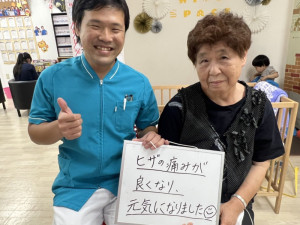 ヒザの痛みが
良くなり、
元気になりました☺